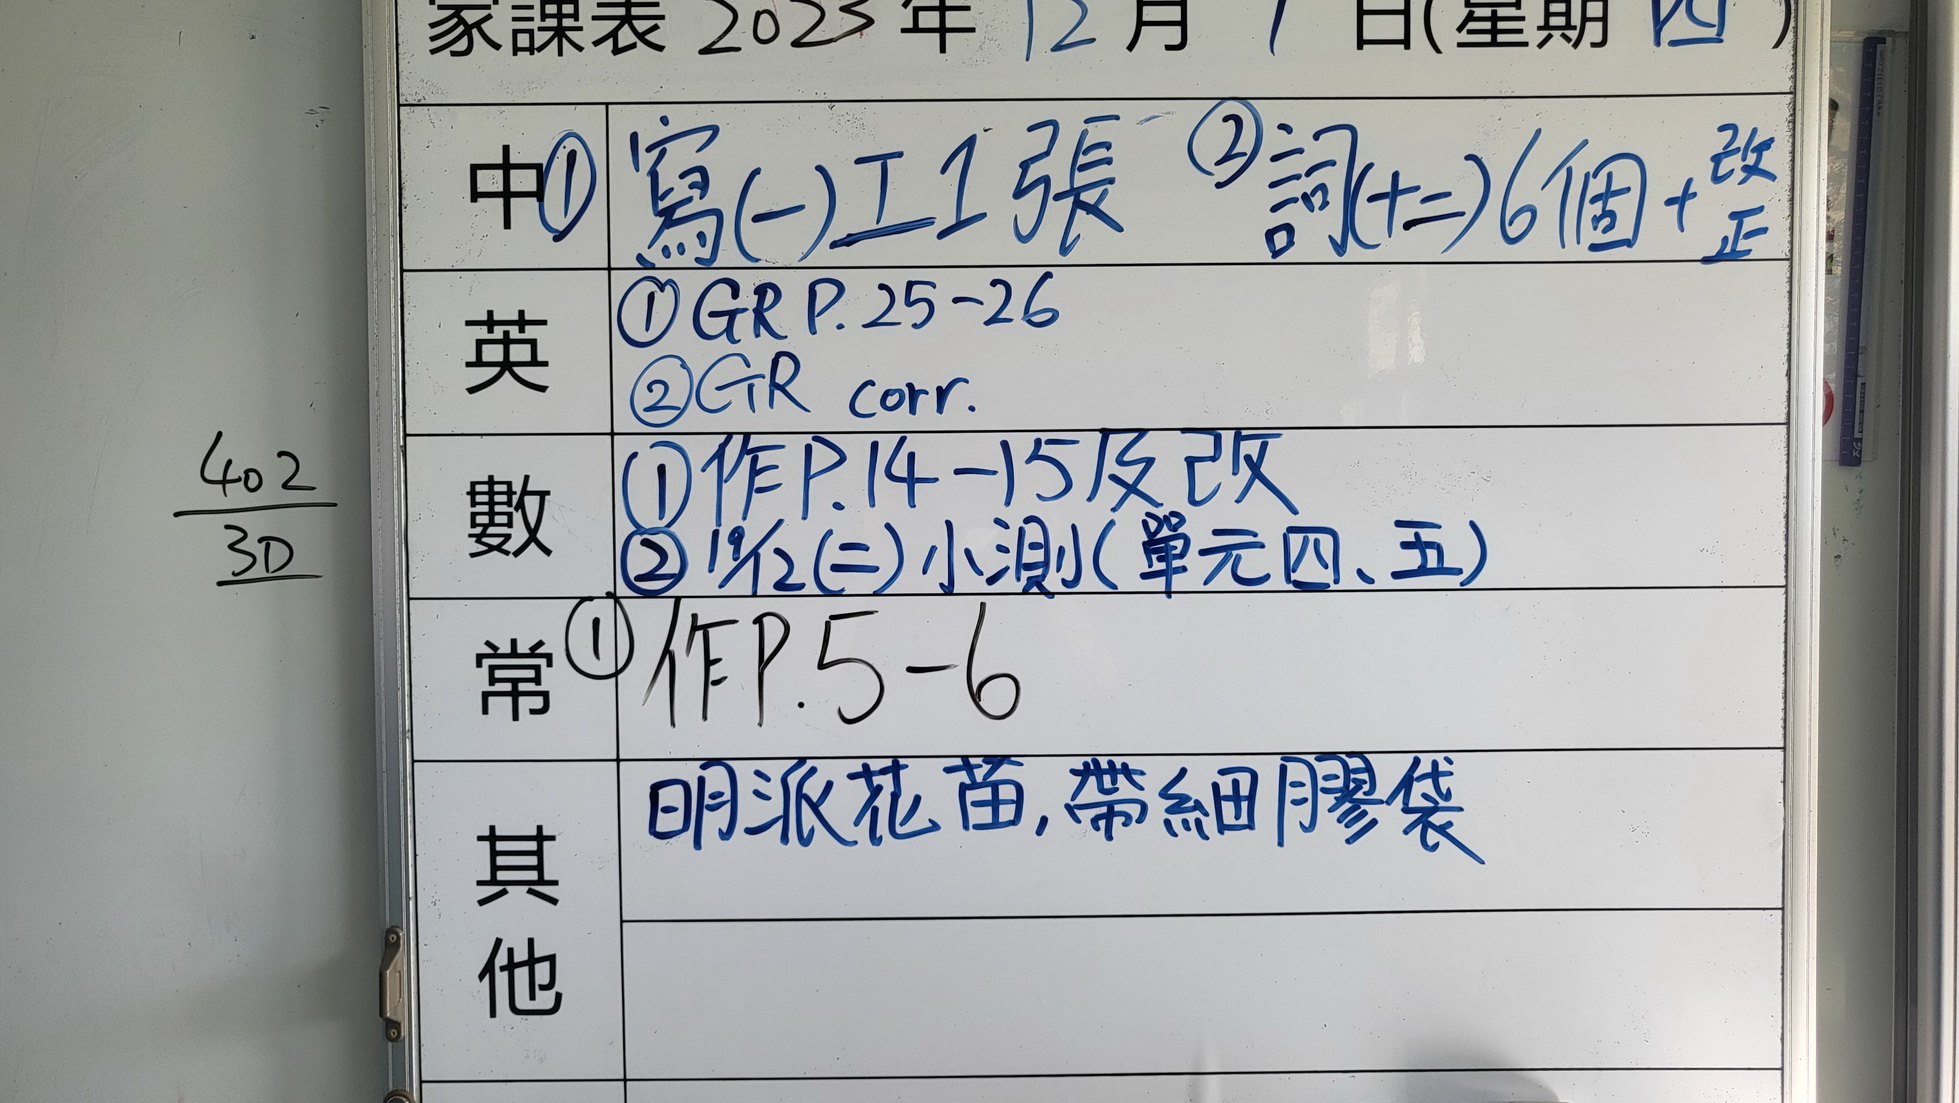 家課表 2023 年 12 月 7 日(星期 四 )
中 ① 寫(一)工1張 ② 詞(十二)6個+改正
英 ① GR P.25-26
② GR corr.
數 ① 作P.14-15及改
② 19/12(二)小測(單元四、五)
402
3D
常 ① 作P.5-6
其他 明派花苗,帶細膠袋